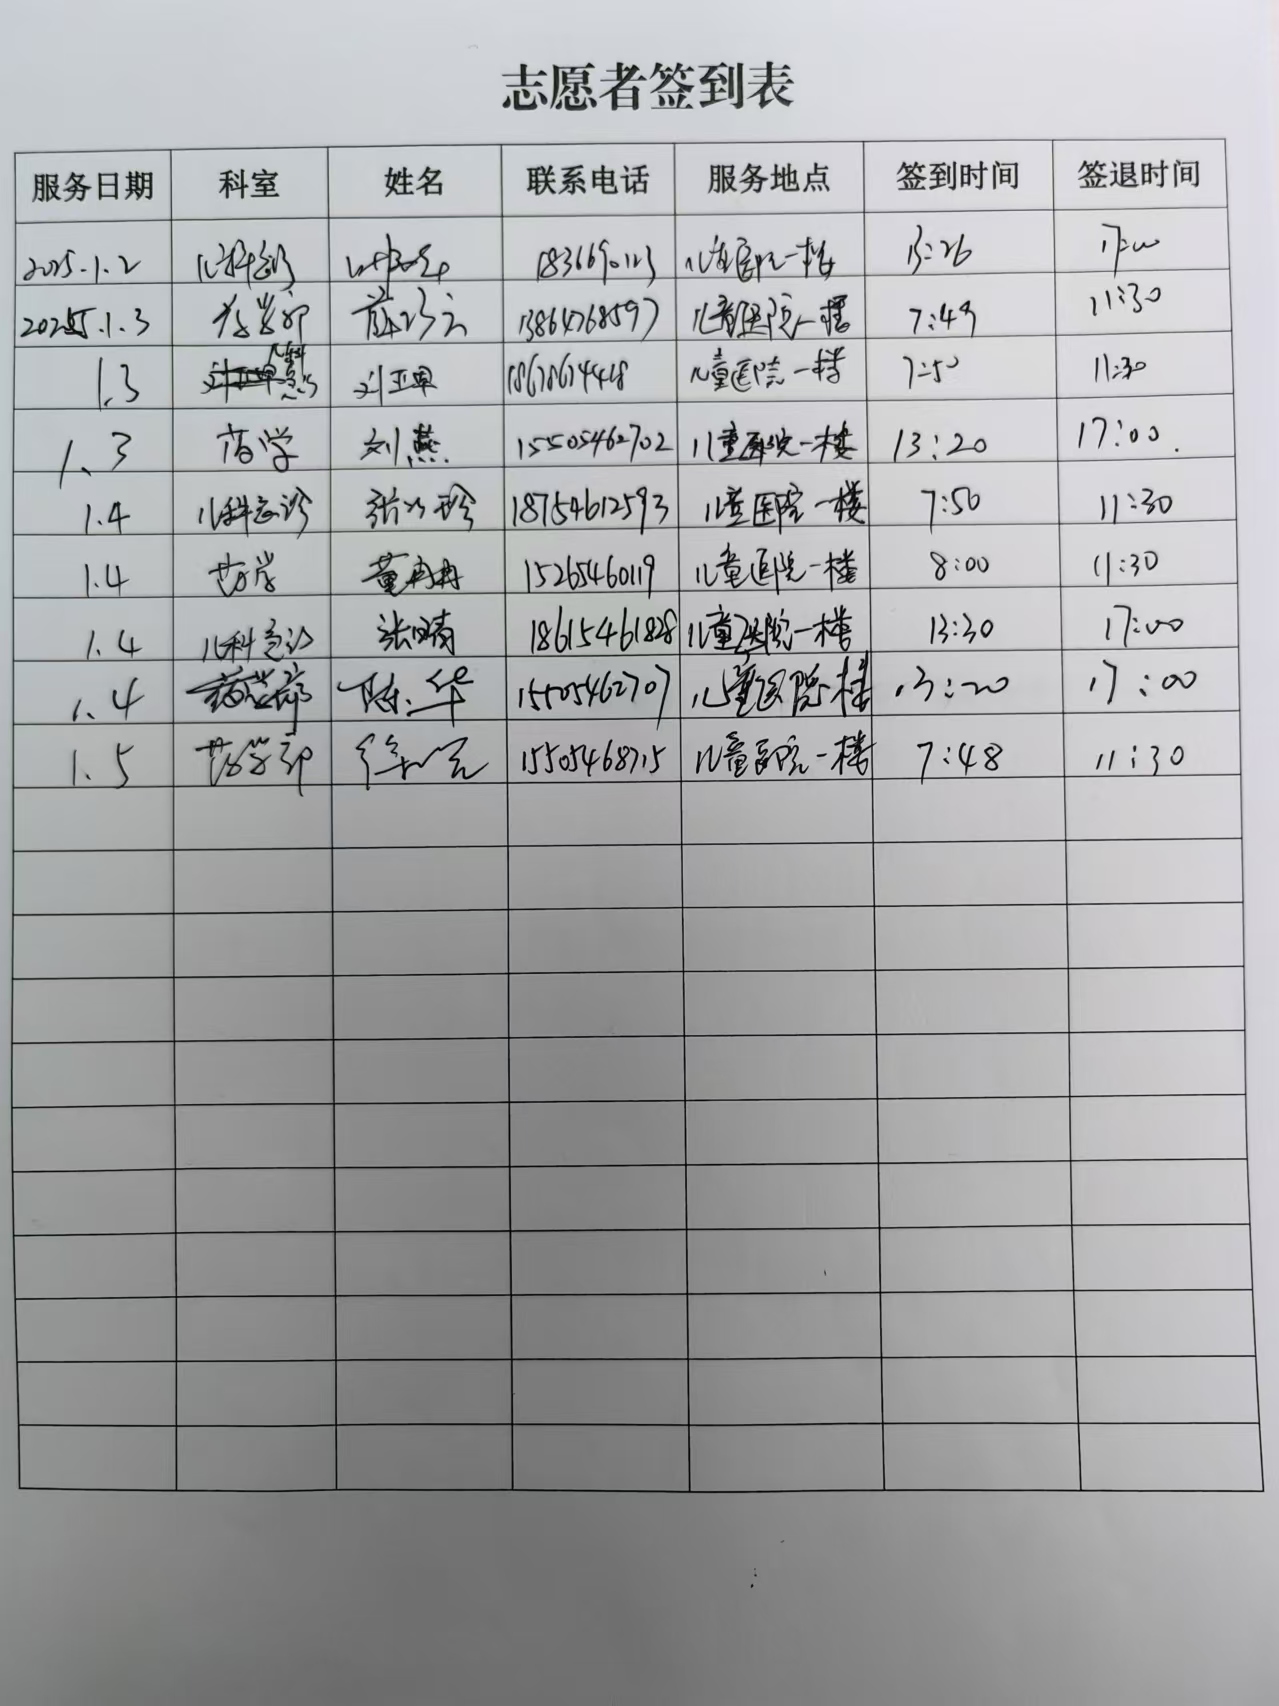 志愿者签到表
服务日期 科室 姓名 联系电话 服务地点 签到时间 签退时间
2025.1.2 儿科急诊 儿童医院一楼 13:26 17:00
2025.1.3 药学部 13864768597 儿童医院一楼 7:49 11:30
1.3 儿科急诊 18678674418 儿童医院一楼 7:50 11:30
1.3 药学 刘燕 15505462702 儿童医院一楼 13:20 17:00
1.4 儿科急诊 18754612593 儿童医院一楼 7:50 11:30
1.4 药学 董冉冉 15265460119 儿童医院一楼 8:00 11:30
1.4 儿科急诊 张晴 18615461828 儿童医院一楼 13:30 17:00
1.4 药学部 陈华 15505462707 儿童医院一楼 13:20 17:00
1.5 药学部 15505468715 儿童医院一楼 7:48 11:30